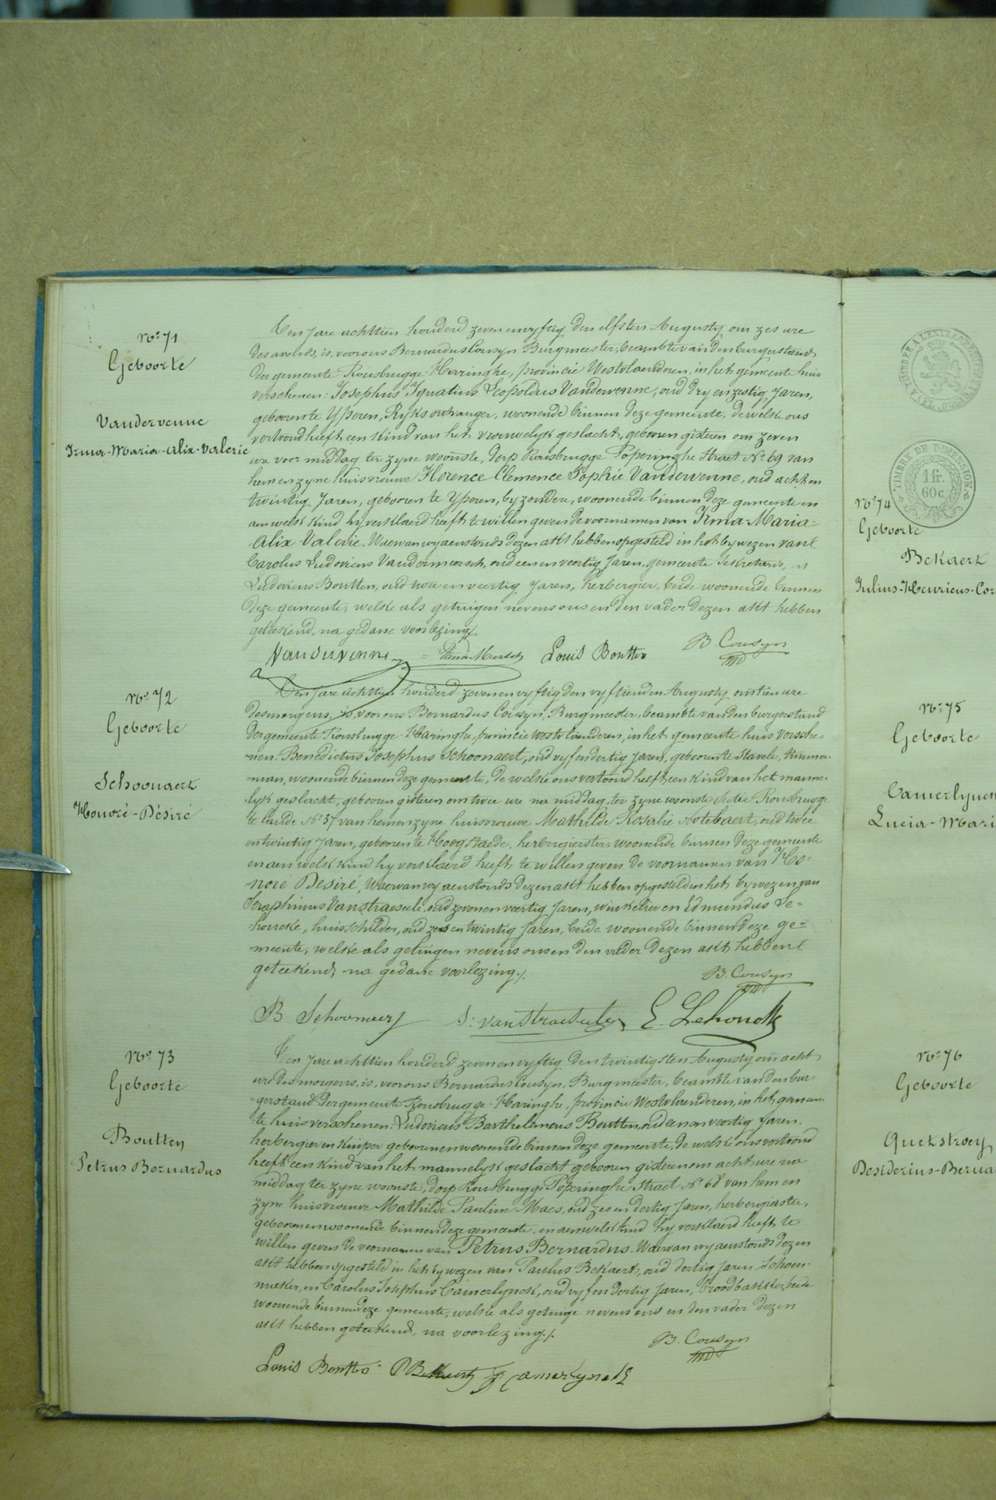 No. 71
Geboorte
Vandervenne
Irma-Maria-Alix-Valerie
Ten jare achttien honderd zeven en vyftig den elfsten Augusty om zes ure
des avonds, is, voor ons Bernardus Cousyn Burgmeester, beambte van den burgerstand
der gemeente Rousbrugge-Haringhe, provincie Westvlanderen, in het gemeente huis
verschenen Josephus Ignatius Leopoldus Vandervenne, oud dry en zestig Jaren,
geboren te Yperen, Ryks ontvanger, woonende binnen deze gemeente, de welk ons
vertoond heeft een kind van het vrouwelyk geslacht, geboren gisteren om zeven
ure voor middag ter zyne woonste, dorp Rousbrugge Poperinghe Straet No. 69 van
hem en zyne huisvrouwe Florence Clemence Sophie Vanderwenne, oud acht en
twintig Jaren, geboren te Yperen, byzondere, woonende binnen deze gemeente en
aen welk kind hy verklaerd heeft te willen geven de voornamen van Irma Maria-
Alix Valerie. Waervan wy aenstonds dezen akt hebben opgesteld in het bywezen van
Carolus Ludovicus Vandermeersch, oud een en veertig Jaren, gemeente Sekretaris, en
Ludovicus Boutten, oud en veertig Jaren, herbergier, beide woonende binnen
deze gemeente, welke als getuigen nevens ons en den vader dezen akt hebben
geteekend, na gedane voorlezing/.
Vandervenne Louis Boutten B Cousyn
No. 72
Geboorte
Schoonaert
Honoré-Désiré
Ten jare achttien honderd zeven en vyftig den vyftienden Augusty, om tien ure
des morgens, is, voor ons Bernardus Cousyn, Burgmeester, beambte van den burgerstand
der gemeente Rousbrugge-Haringhe, provincie Westvlanderen, in het gemeente huis versche-
nen Benedictus Josephus Schoonaert, oud vyf en dertig Jaren, geboren te Stavele,
woonende binnen deze gemeente, de welke ons vertoond heeft een kind van het manne-
lyk geslacht, geboren gisteren om twee ure na middag, ter zyne woonste sectie Rousbrugge
te lande No. 37 van hem en zyne huisvrouwe Mathilde Rosalie Notebaert, oud twee
en twintig Jaren, geboren te Hoogstaede, herbergierster, woonende binnen deze gemeente
en aen welk kind hy verklaerd heeft te willen geven de voornamen van Ho-
noré Desiré, Waervan wy aenstonds dezen akt hebben opgesteld in het bywezen van
Seraphinus Vanstraeseele, oud zeven en veertig Jaren, winkelier en Edmundus Le-
houcke, huisschilder, oud zes en twintig Jaren, beide woonende binnen deze ge-
meente, welke als getuigen nevens ons en den vader dezen akt hebben
geteekend, na gedane voorlezing/. B. Cousyn
B Schoonaert S: vanStraeseele E. Lehoucke
No. 73
Geboorte
Boutten
Petrus Bernardus
Ten jare achttien honderd zeven en vyftig den twintigsten Augusty om acht
ure des morgens, is, voor ons Bernardus Cousyn, Burgmeester, beambte van den bur-
gerstand der gemeente Rousbrugge-Haringhe, provincie Westvlaenderen, in het gemeen-
te huis verschenen Ludovicus Barthelemeus Boutten, oud en veertig Jaren,
herbergier en kuiper geboren en woonende binnen deze gemeente, de welke ons vertoond
heeft een kind van het mannelyk geslacht geboren gisteren om acht ure na
middag ter zyne woonste, dorp Rousbrugge Poperinghe Straet No. 68 van hem en
zyne huisvrouwe Mathilde Pauline Maes, oud zes en dertig Jaren, herbergierster,
geboren en woonende binnen deze gemeente, en aen welk kind hy verklaerd heeft te
willen geven de voornamen van Petrus Bernardus. Waervan wy aenstonds dezen
akt hebben opgesteld in het bywezen van Paulus Bekaert, oud dertig Jaren schoen-
maker, en Carolus Josephus Camerlynck, oud vyf en dertig Jaren, broodbakker, beide
woonende binnen deze gemeente, welke als getuige nevens ons en den vader dezen
akt hebben geteekend, na voorlezing/. B. Cousyn
Louis Boutten P Bekaert Camerlynck
1 fr.
60 c.
No. 74
Geboorte
Bekaert
Julius-Henricus-Cor
No. 75
Geboorte
Camerlynck
Lucia-Mari
No. 76
Geboorte
Quekstroey
Desiderius-Berna